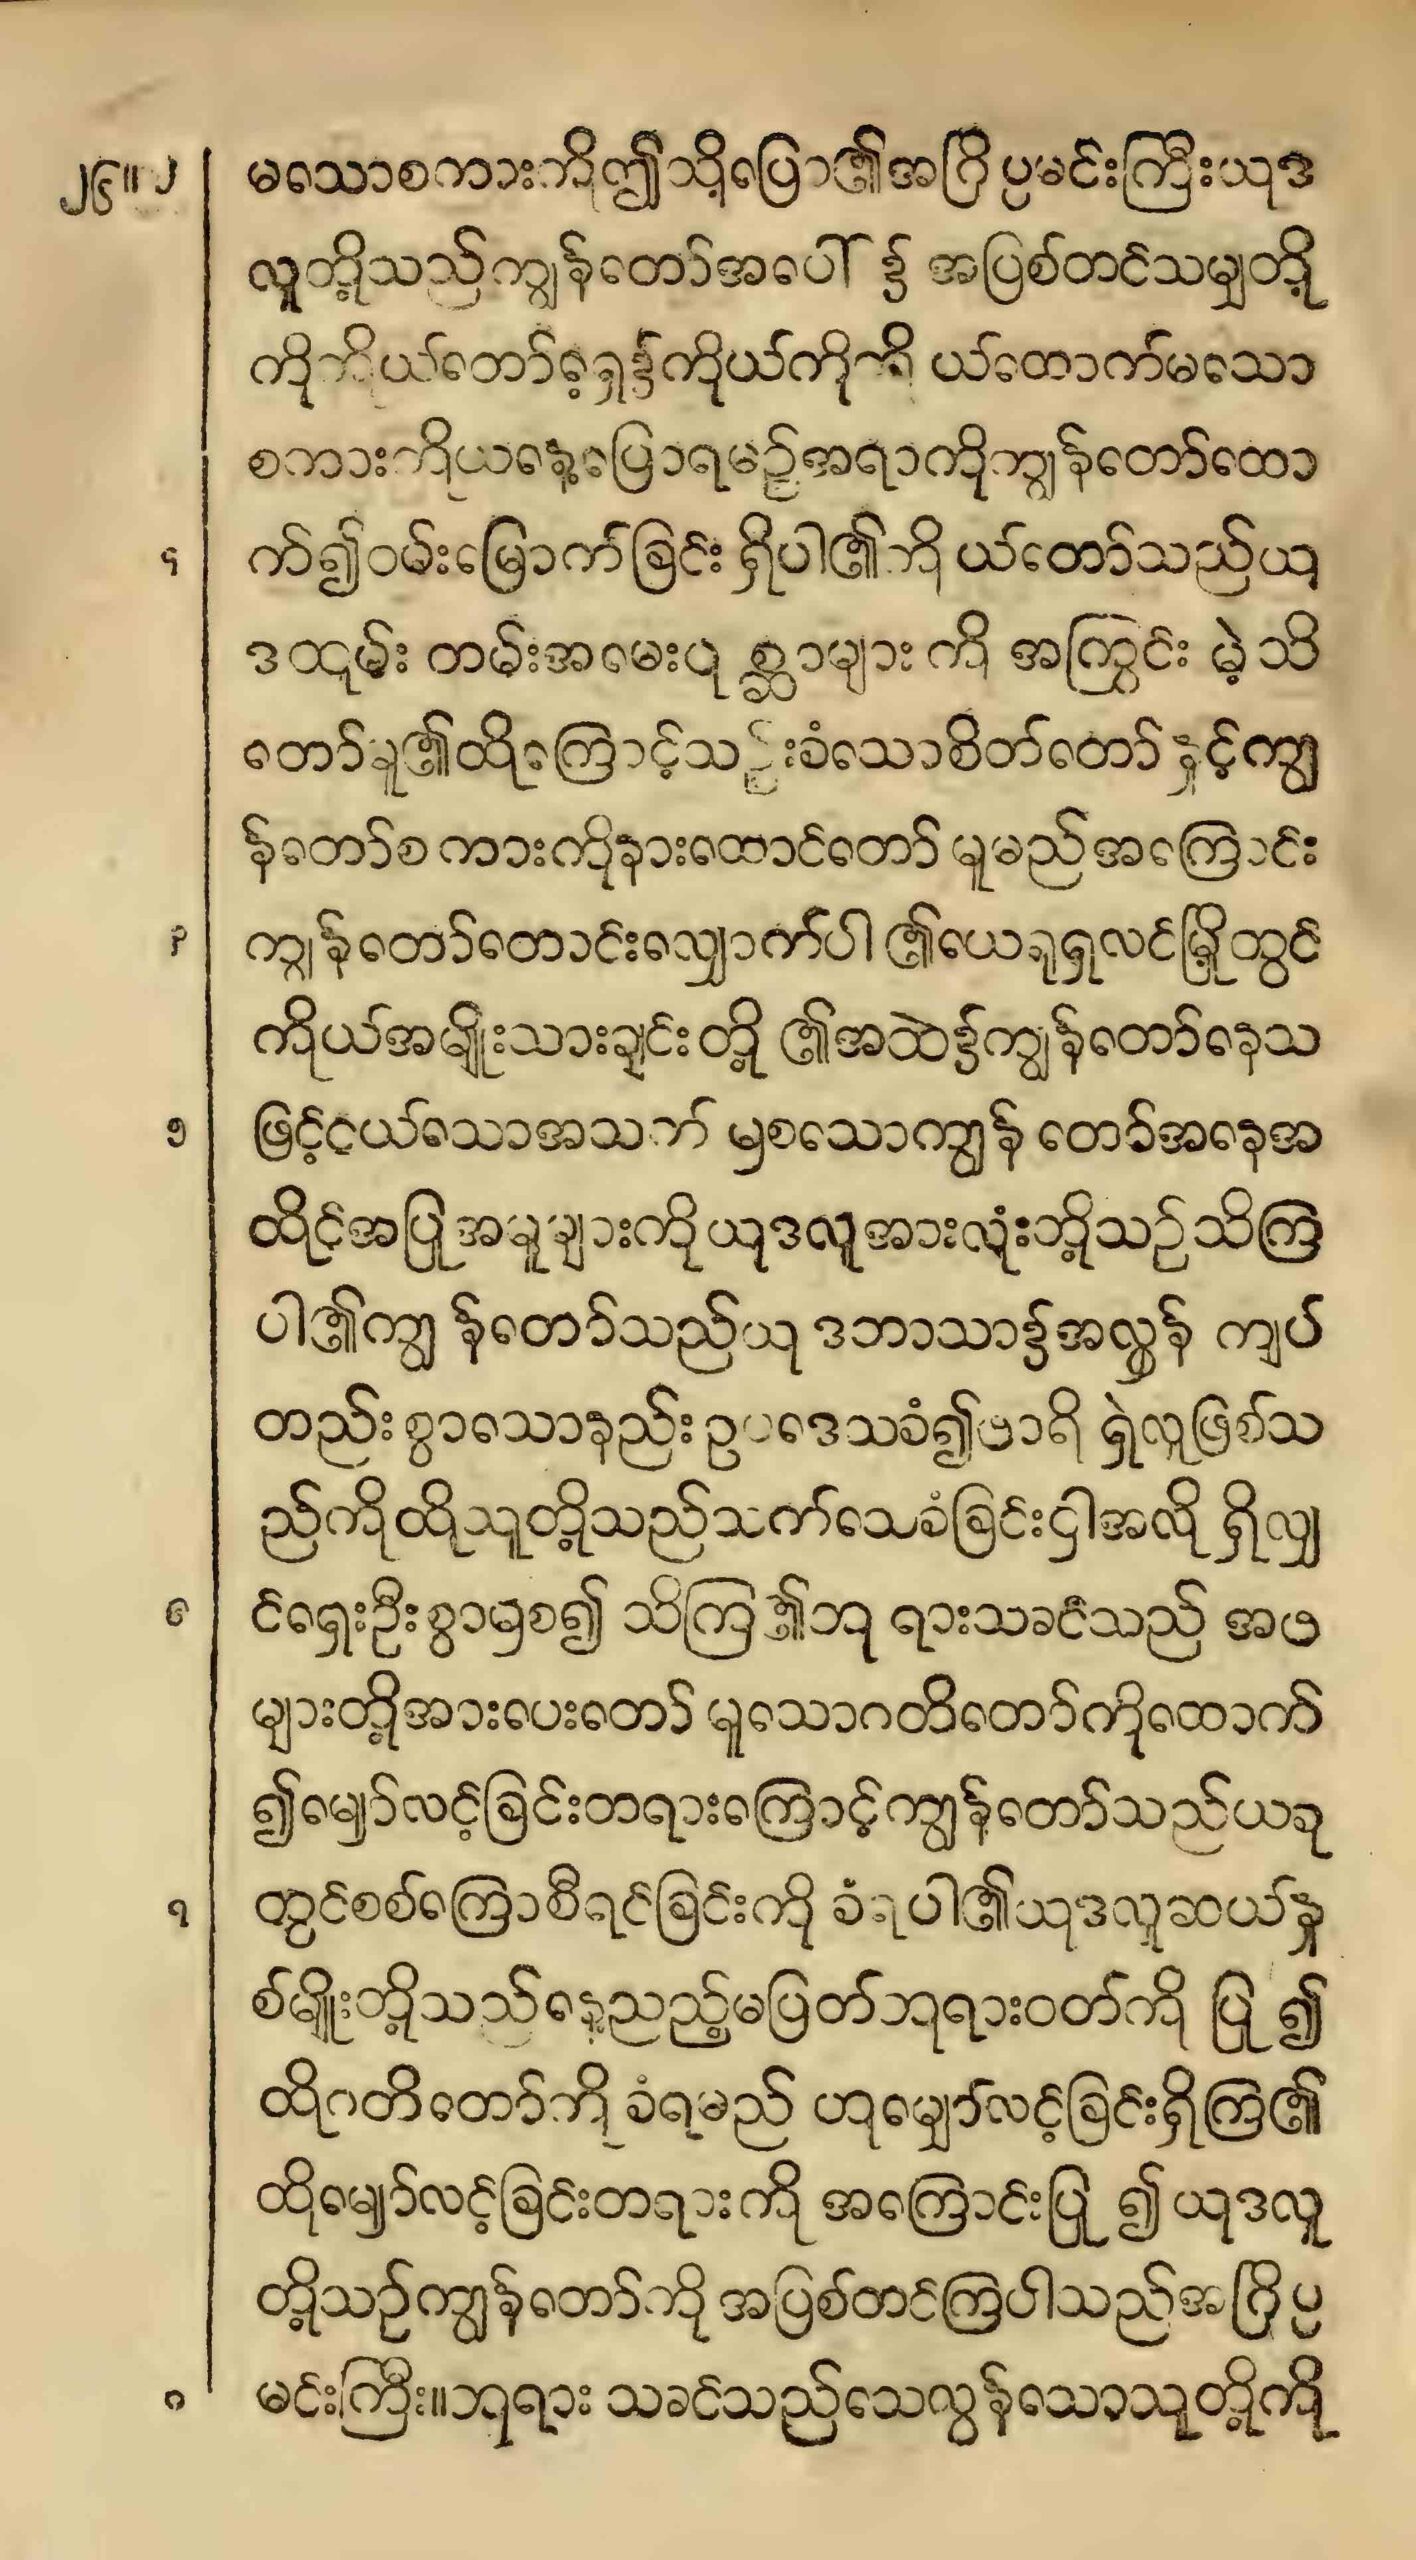 ၂၆။ ၂ မသောစကားကိုဤသို့ပြော၏အဂြိပ္ပမင်းကြီးယုဒ
လူတို့သည်ကျွန်တော်အပေါ်၌ အပြစ်တင်သမျှတို့
ကိုကိုယ်တော့်ရှေ့၌ကိုယ်ကိုကိုယ်ထောက်မသော
စကားကိုယနေ့ပြောရမည့်အရာကိုကျွန်တော်ထော
၃ က်၍ဝမ်းမြောက်ခြင်းရှိပါ၏ကိုယ်တော်သည်ယု
ဒထုမ်းတမ်းအမေးပုစ္ဆာများကို အကြွင်းမဲ့သိ
တော်မူ၏ထိုကြောင့်သည်းခံသောစိတ်တော်နှင့်ကျွ
န်တော်စကားကိုနားထောင်တော်မူမည်အကြောင်း
၄ ကျွန်တော်တောင်းလျှောက်ပါ၏ယေရုရှလင်မြို့တွင်
ကိုယ်အမျိုးသားချင်းတို့၏အထဲ၌ကျွန်တော်နေသ
၅ ဖြင့်ငယ်သောအသက်မှစသောကျွန်တော်အနေအ
ထိုင်အပြုအမူများကိုယုဒလူအားလုံးတို့သည်သိကြ
ပါ၏ကျွန်တော်သည်ယုဒဘာသာ၌အလွန်ကျပ်
တည်းစွာသောနည်းဥပဒေသခံ၍ဖာရိရှဲလူဖြစ်သ
ည်ကိုထိုသူတို့သည်သက်သေခံခြင်းငှါအလိုရှိလျှ
၆ င်ရှေးဦးစွာမှစ၍ သိကြ၏ဘုရားသခင်သည် အဖ
များတို့အားပေးတော်မူသောဂတိတော်ကိုထောက်
၍မျှော်လင့်ခြင်းတရားကြောင့်ကျွန်တော်သည်ယခု
၇ တွင်စစ်ကြောစီရင်ခြင်းကိုခံရပါ၏ယုဒလူဆယ်နှ
စ်မျိုးတို့သည်နေ့ညည့်မပြတ်ဘုရားဝတ်ကိုပြု၍
ထိုဂတိတော်ကိုခံရမည် ဟုမျှော်လင့်ခြင်းရှိကြ၏
ထိုမျှော်လင့်ခြင်းတရားကို အကြောင်းပြု၍ယုဒလူ
တို့သည်ကျွန်တော်ကိုအပြစ်တင်ကြပါသည်အဂြိပ္ပ
၈ မင်းကြီး။ဘုရားသခင်သည်သေလွန်သောသူတို့ကို